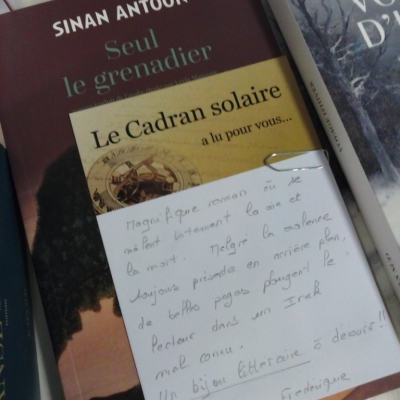 SINAN ANTOON
Seul
le grenadier
Le Cadran solaire
a lu pour vous...
Magnifique roman où se
mêlent intimement la vie et
la mort. Malgré la violence
toujours présente en arrière plan,
de belles pages plongent le
lecteur dans un Irak
mal connu.
Un bijou littéraire à découvrir!!
Frédérique